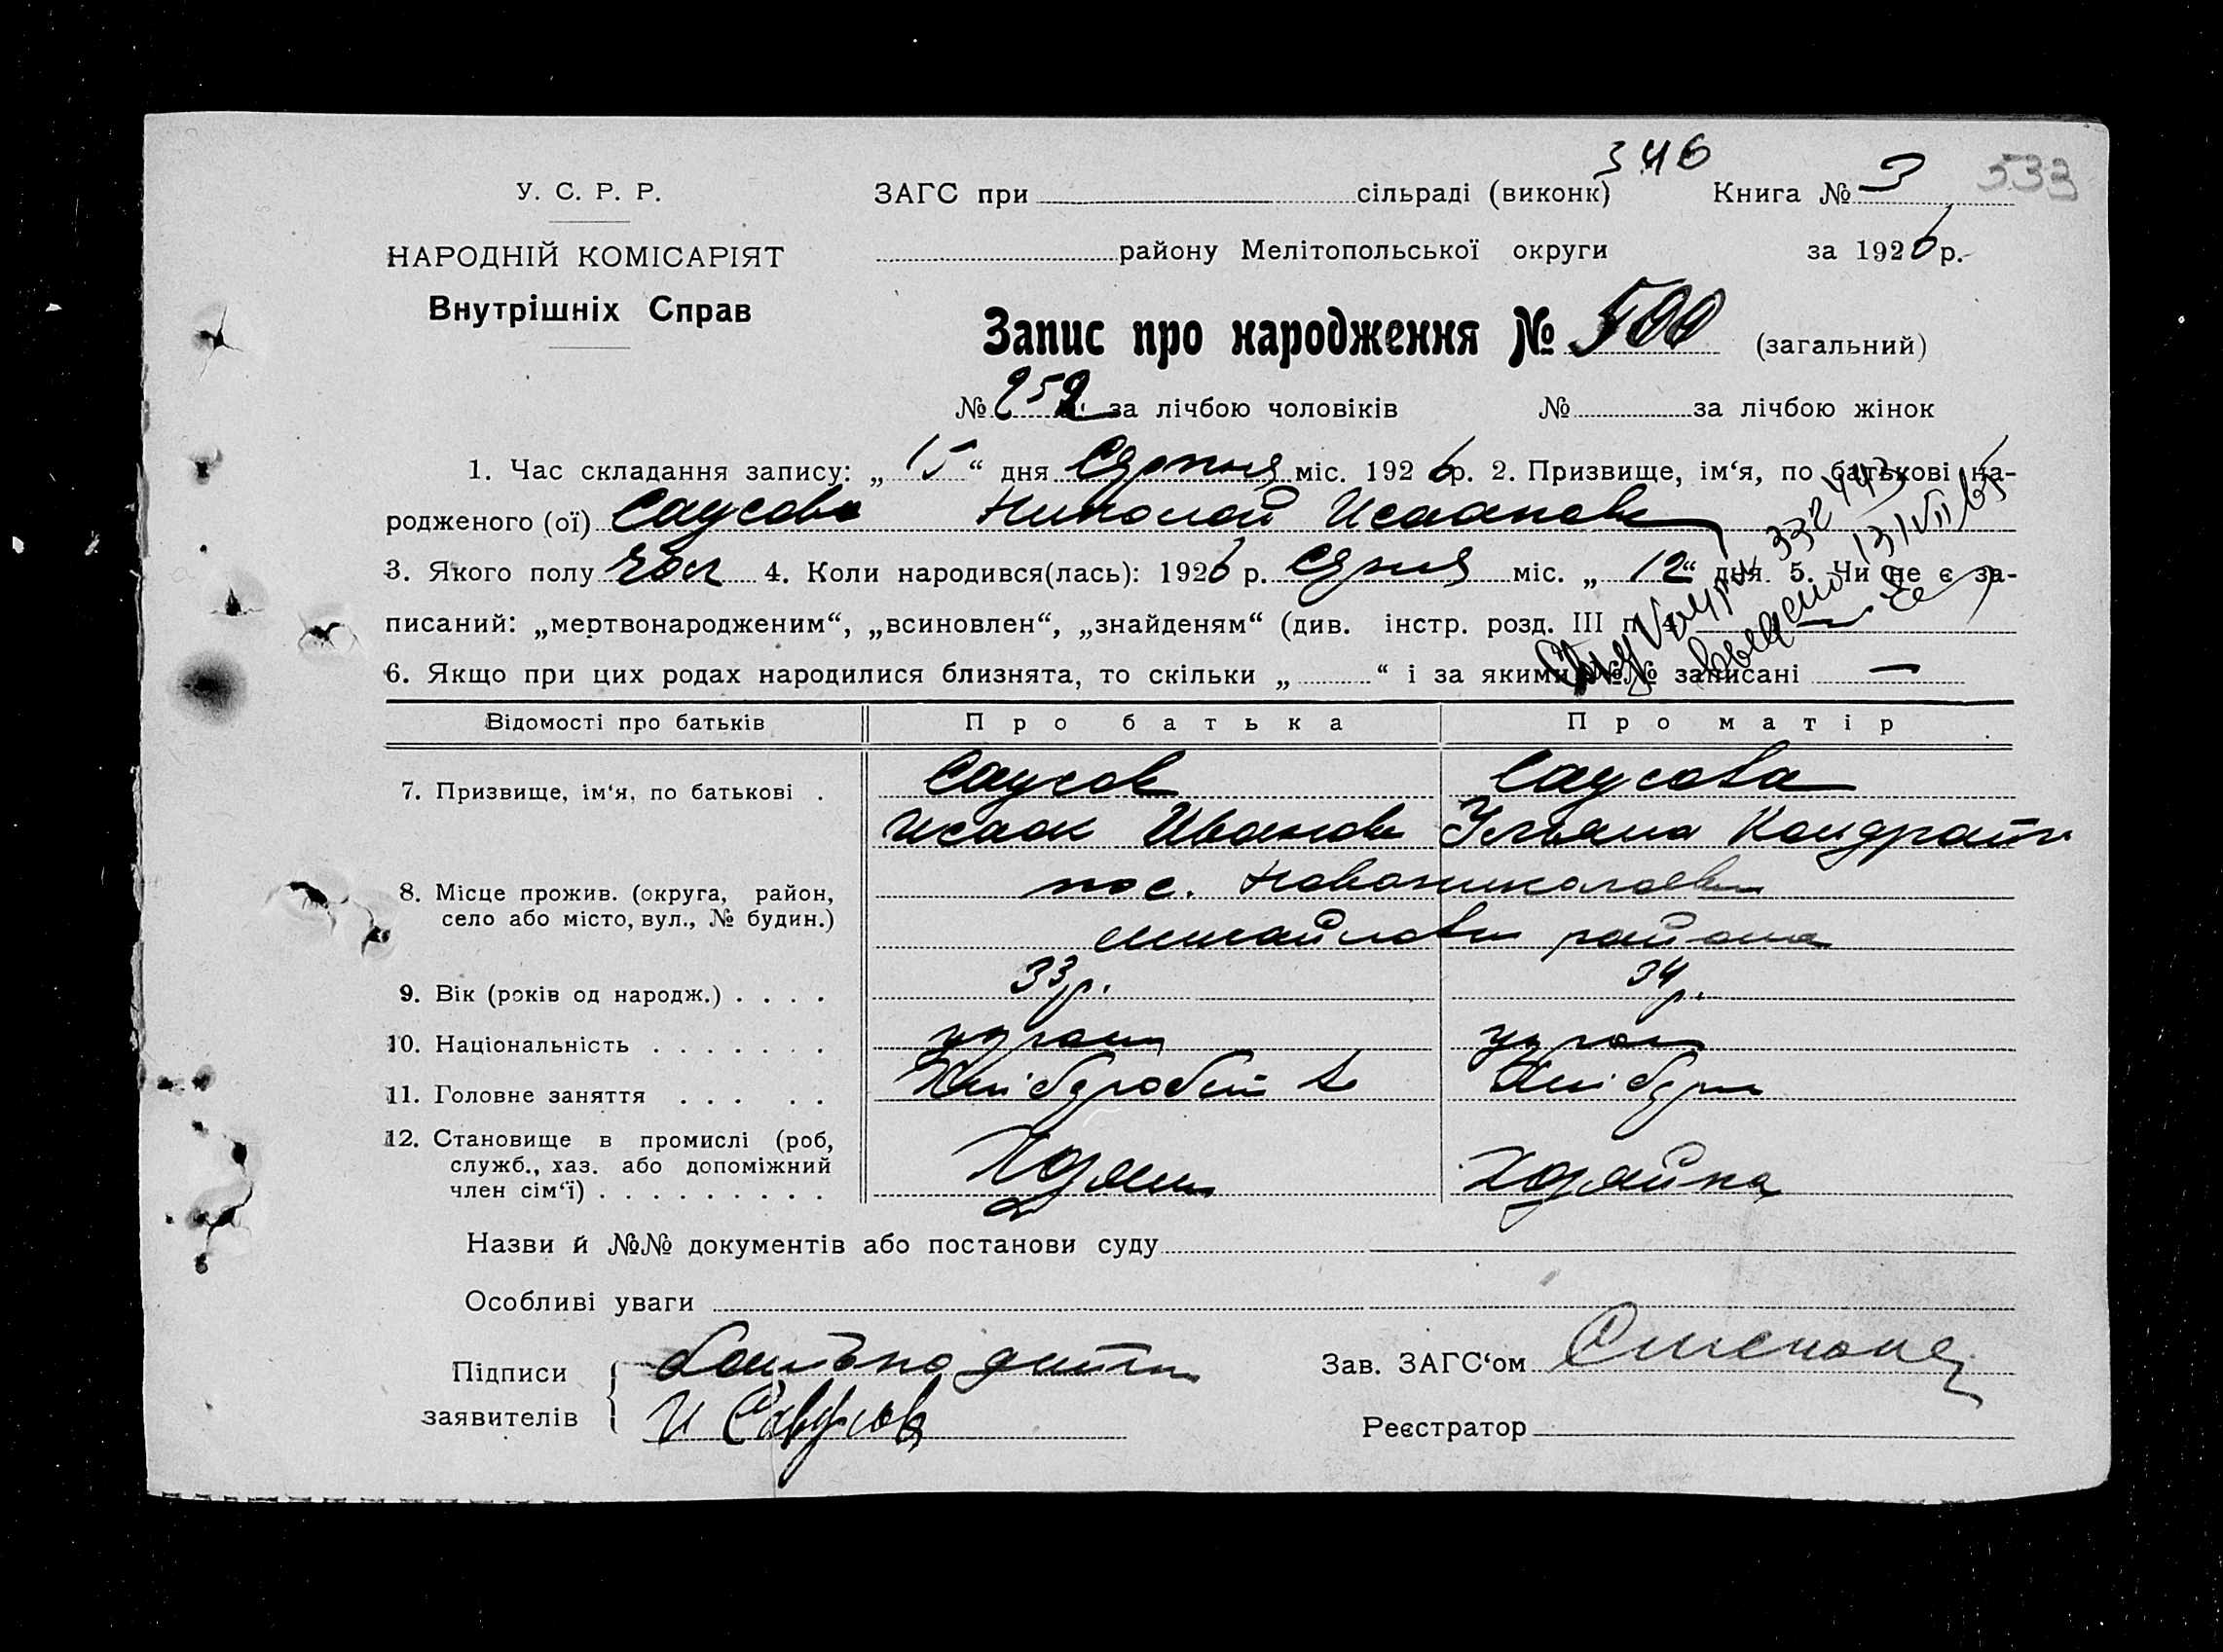 346
533
У. С. Р. Р.
ЗАГС при сільраді (виконк) Книга № 3
НАРОДНІЙ КОМІСАРІЯТ
району Мелітопольської округи за 1926 р.
Внутрішніх Справ
Запис про народження № 500 (загальний)
№ 252 за лічбою чоловіків № за лічбою жінок
1. Час складання запису: „ 15 “ дня Серпня міс. 1926 р. 2. Призвище, ім‘я, по батькові на-
родженого (ої) Саусов Николай Исаанов
3. Якого полу чол 4. Коли народився(лась): 1926 р. Серпня міс. „ 12 “ дня. 5. Чи не є за-
писаний: „мертвонародженим“, „всиновлен“, „знайденям“ (див. інстр. розд. III п. 4)
6. Якщо при цих родах народилися близнята, то скільки „ “ і за якими №№ записані —
332443
Відомості про батьків Про батька Про матір
7. Призвище, ім‘я, по батькові . Саусов Саусова
Исаак Иванов Ульяна Кондратн
8. Місце прожив. (округа, район, пос. Новониколаевк
село або місто, вул., № будин.) михайловк района
9. Вік (років од народж.) . . . . 33 р. 34 р.
10. Національність . . . . . . . украин украин
11. Головне заняття . . . . . Хліборобст Хлібор
12. Становище в промислі (роб,
служб., хаз. або допоміжний Хозяин Хозяйка
член сім‘ї) . . . . . . . . .
Назви й №№ документів або постанови суду
Особливі уваги
Підписи Зав. ЗАГС‘ом
заявителів И Саусов
Реєстратор